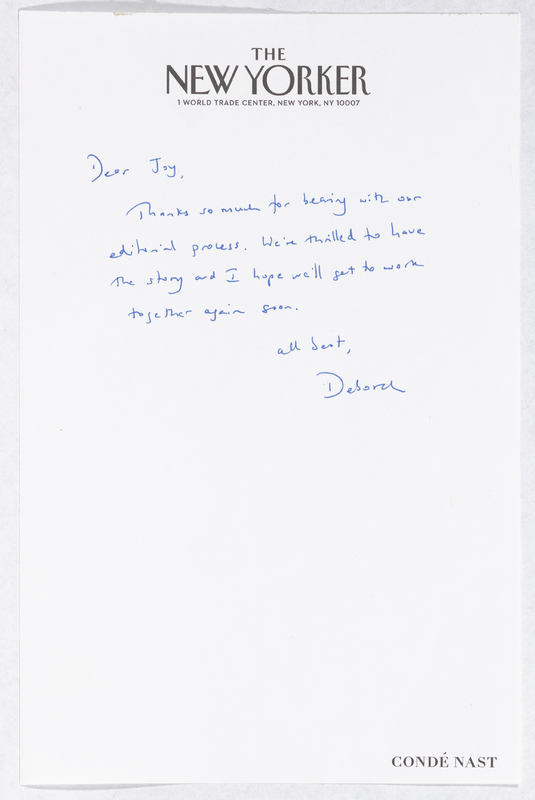 THE
NEW YORKER
1 WORLD TRADE CENTER, NEW YORK, NY 10007
Dear Joy,
Thanks so much for bearing with our
editorial process. We're thrilled to have
the story and I hope we'll get to work
together again soon.
all best,
Deborah
CONDÉ NAST